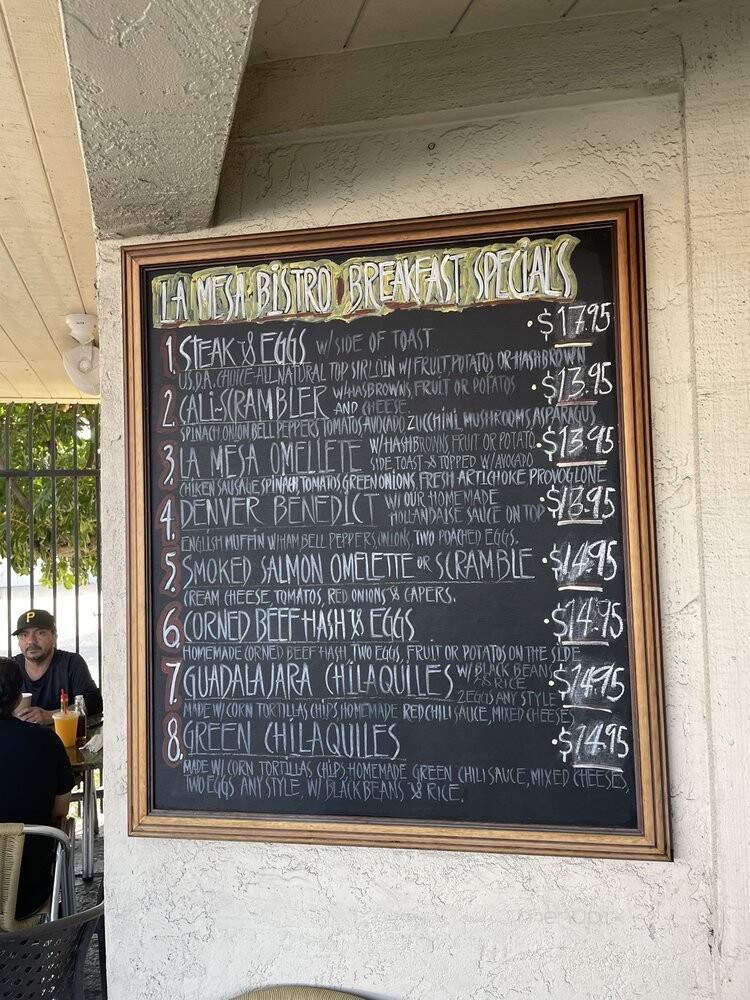 LA MESA BISTRO BREAKFAST SPECIALS
1. STEAK & EGGS W/ SIDE OF TOAST. • $17.95
U.S.D.A. CHOICE-ALL NATURAL TOP SIRLOIN W/ FRUIT POTATOS OR HASHBROWN
2. CALI-SCRAMBLER W/HASBROWNS, FRUIT OR POTATOS AND CHEESE • $13.95
SPINACH ONION BELL PEPPERS TOMATOS AVOCADO ZUCCHINI, MUSHROOMS, ASPARAGUS
3. LA MESA OMELLETE W/HASHBROWNS FRUIT OR POTATO SIDE TOAST & TOPPED W/ AVOCADO • $13.95
CHIKEN SAUSAGE SPINACH, TOMATOS GREEN ONIONS FRESH ARTICHOKE PROVOGLONE
4. DENVER BENEDICT W/ OUR HOMEMADE HOLLANDAISE SAUCE ON TOP • $13.95
ENGLISH MUFFIN W/HAM BELL PEPPERS ONIONS, TWO POACHED EGGS.
5. SMOKED SALMON OMELETTE OR SCRAMBLE • $14.95
CREAM CHEESE, TOMATOS, RED ONIONS & CAPERS.
6. CORNED BEEF HASH & EGGS • $14.95
HOMEMADE CORNED BEEF HASH TWO EGGS, FRUIT OR POTATOS ON THE SIDE
7. GUADALAJARA CHILAQUILLES W/ BLACK BEANS & RICE 2 EGGS ANY STYLE • $14.95
MADE W/ CORN TORTILLAS CHIPS HOMEMADE RED CHILI SAUCE, MIXED CHEESES
8. GREEN CHILAQUILES • $14.95
MADE W/ CORN TORTILLAS CHIPS HOMEMADE GREEN CHILI SAUCE, MIXED CHEESES,
TWO EGGS ANY STYLE, W/ BLACK BEANS & RICE.
P